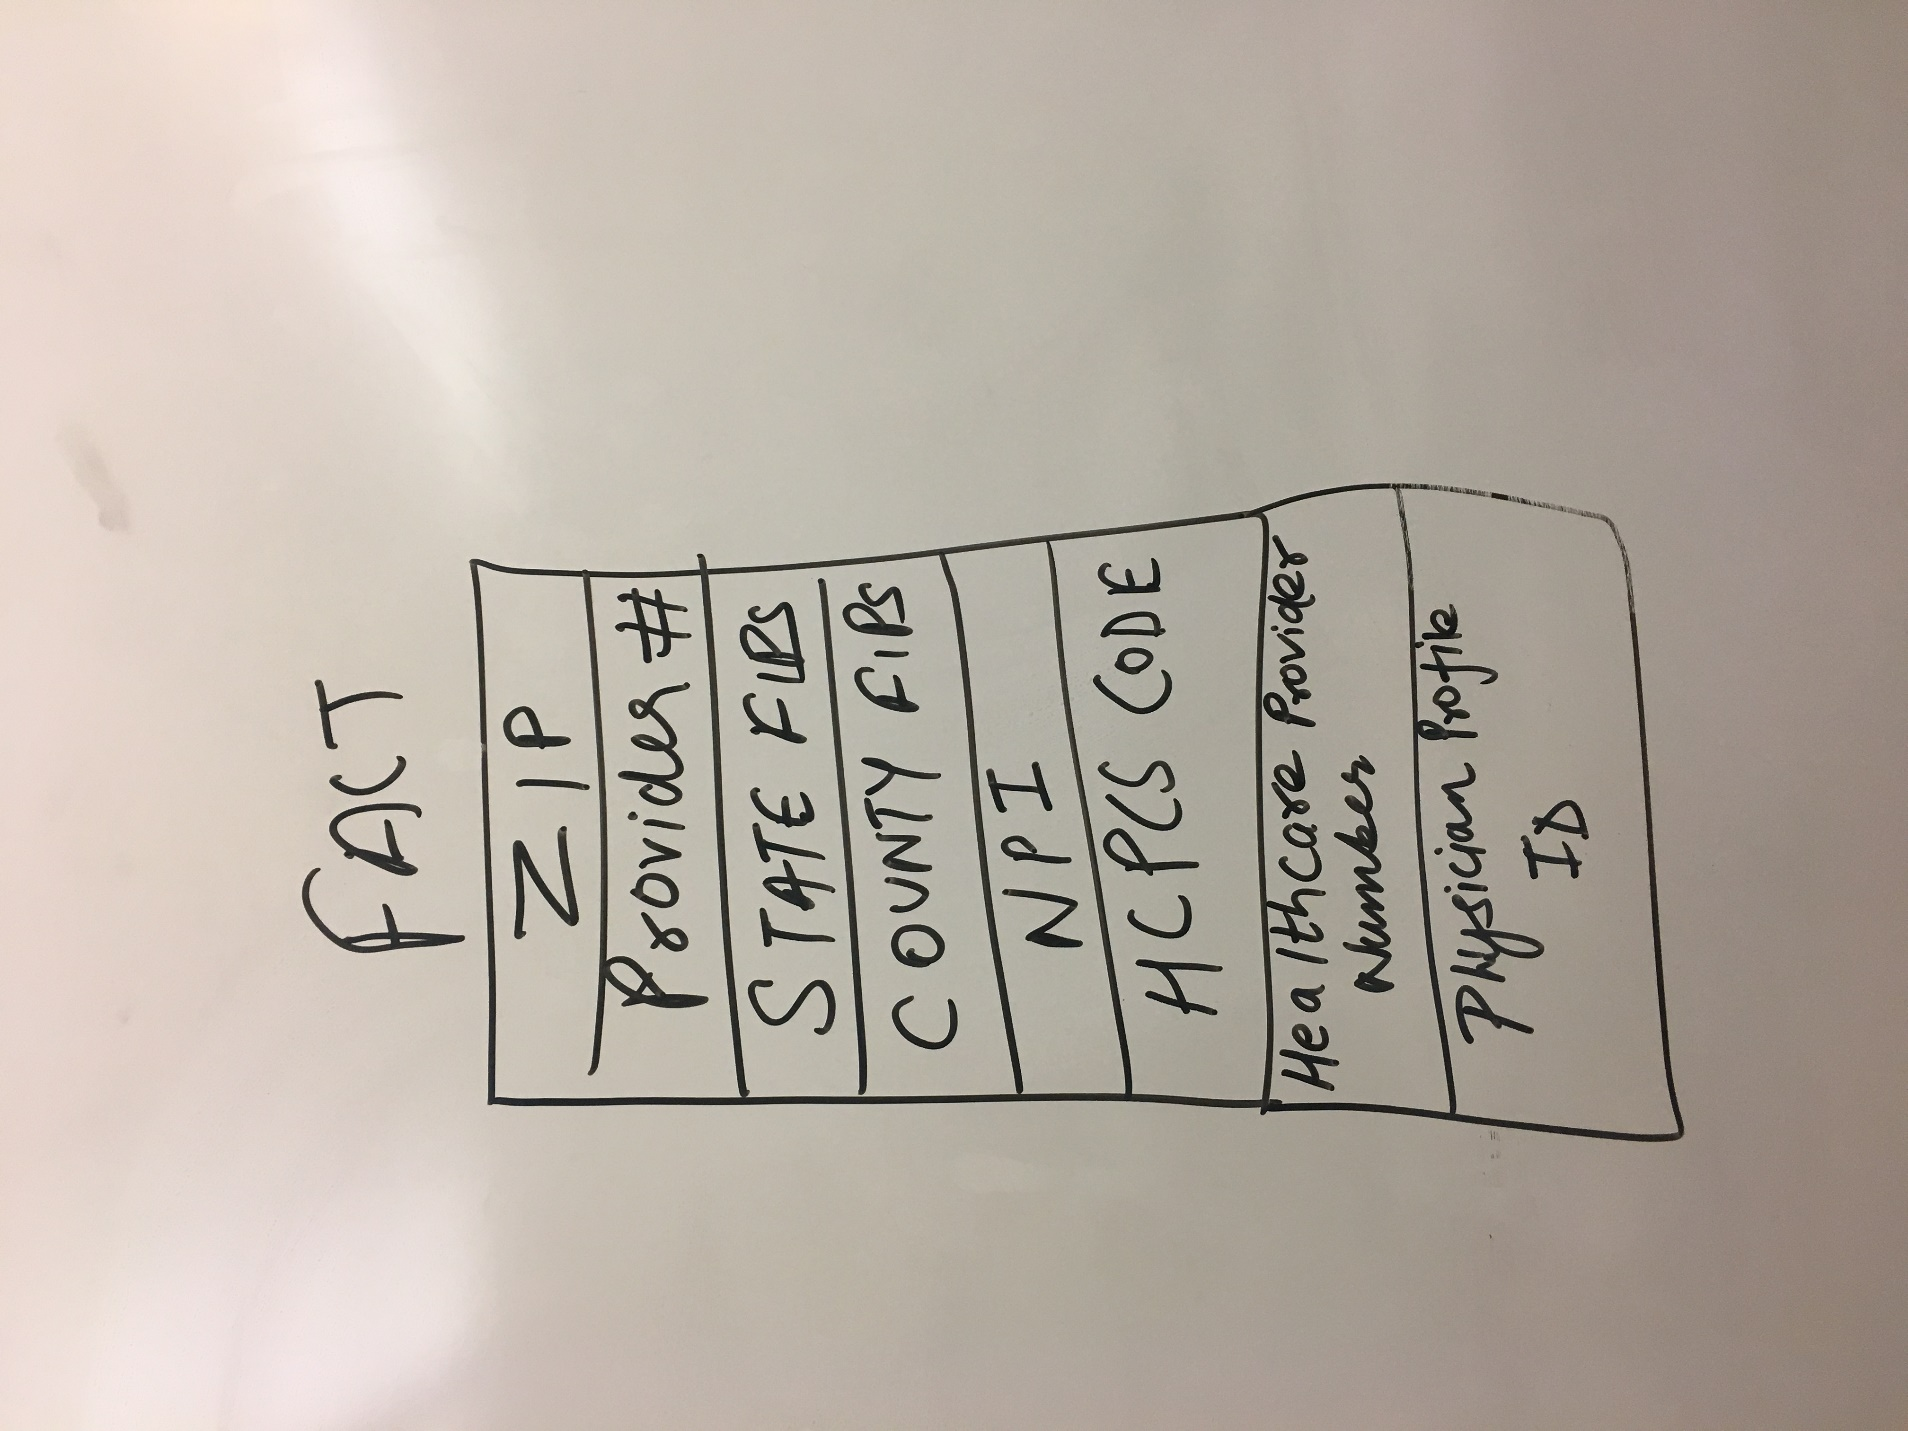 FACT
ZIP
Provider #
STATE FIPS
COUNTY FiPS
NPI
HCPCS CODE
Healthcare Provider
Number
Physician Profile
ID